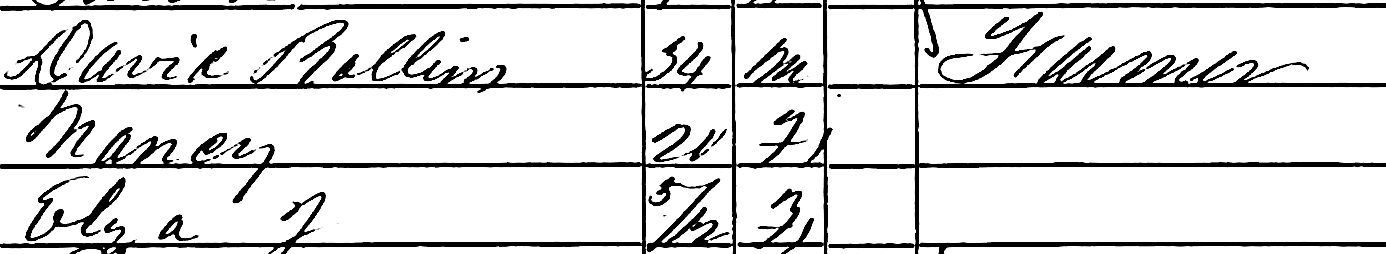 David Rollins 34 M Farmer
Nancy 21 F
Elza J 5/12 F